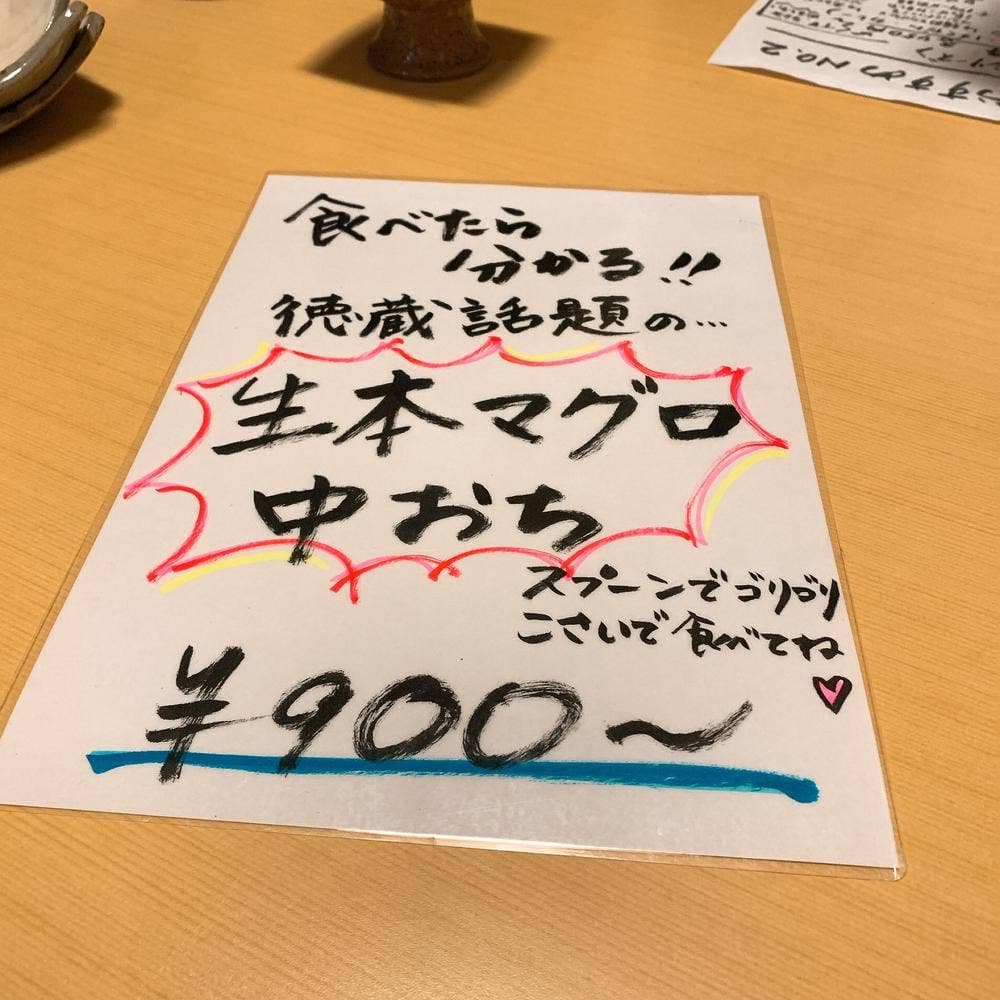 食べたら
分かる!!
徳蔵話題の…
生本マグロ
中おち
スプーンでゴリゴリ
こさいで食べてね
¥900〜
おすすめ NO.2